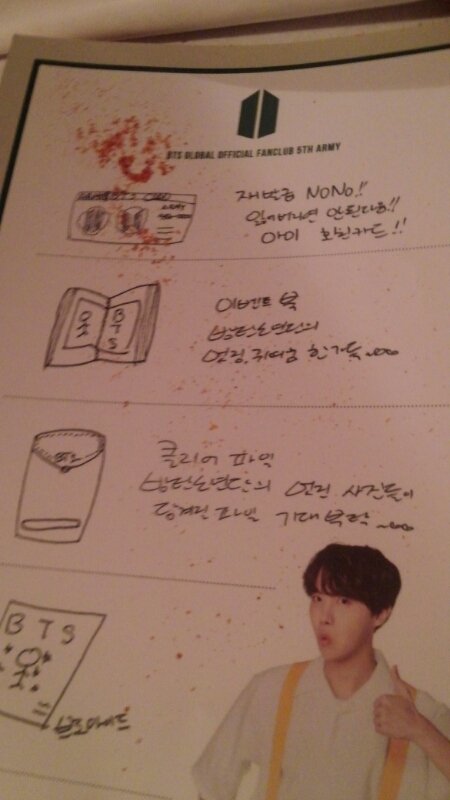 BTS GLOBAL OFFICIAL FANCLUB 5TH ARMY
재발급 NONO!!
잃어버리면 안된다옹!!
아미 회원카드!!
이벤트 북
방탄소년단의
멋짐, 귀여움 한가득~
B
T
S
클리어 파일
방탄소년단의 멋진 사진들이
담겨진 파일 기대부탁~
BTS
BTS